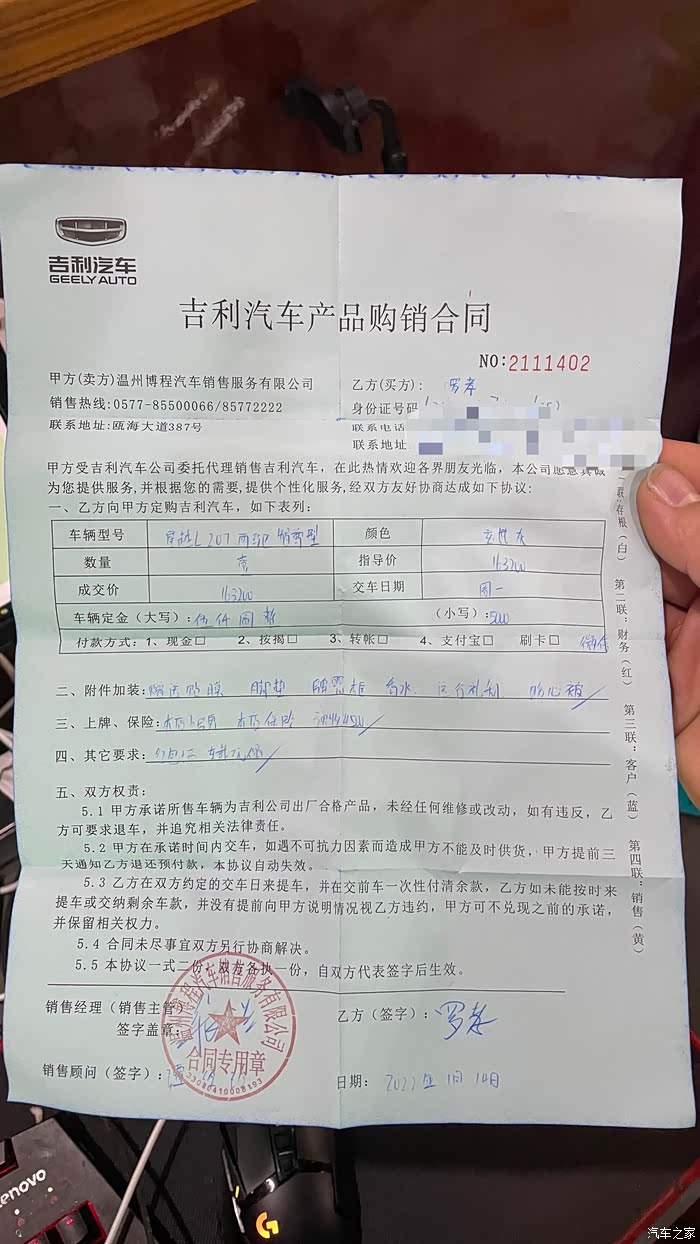 吉利汽车
GEELY AUTO
吉利汽车产品购销合同
NO:2111402
甲方(卖方)温州博程汽车销售服务有限公司
乙方(买方):
销售热线:0577-85500066/85772222
身份证号码
联系地址:瓯海大道387号
联系电话
联系地址
甲方受吉利汽车公司委托代理销售吉利汽车，在此热情欢迎各界朋友光临，本公司愿意真诚
为您提供服务,并根据您的需要,提供个性化服务,经双方友好协商达成如下协议:
一、乙方向甲方定购吉利汽车，如下表列:
车辆型号 星越L 2.0T 两驱
颜色
数量 壹
指导价 163200
成交价 163200
交车日期 周一
车辆定金（大写）: 伍仟圆整
（小写）: 5000
付款方式: 1、现金□ 2、按揭□ 3、转帐□ 4、支付宝□ 刷卡□ 微信
二、附件加装: 脚垫 香水
三、上牌、保险:
四、其它要求:
五、双方权责:
5.1 甲方承诺所售车辆为吉利公司出厂合格产品，未经任何维修或改动，如有违反，乙
方可要求退车，并追究相关法律责任。
5.2 甲方在承诺时间内交车，如遇不可抗力因素而造成甲方不能及时供货，甲方提前三
天通知乙方退还预付款，本协议自动失效。
5.3 乙方在双方约定的交车日来提车，并在交前车一次性付清余款，乙方如未能按时来
提车或交纳剩余车款，并没有提前向甲方说明情况视乙方违约，甲方可不兑现之前的承诺，
并保留相关权力。
5.4 合同未尽事宜双方另行协商解决。
5.5 本协议一式二份，双方各执一份，自双方代表签字后生效。
销售经理（销售主管）
签字盖章:
乙方（签字）:
销售顾问（签字）:
日期: 2022年1月14日
温州博程汽车销售服务有限公司
合同专用章
33030410008193
一联:存根（白） 第二联:财务（红） 第三联:客户（蓝） 第四联:销售（黄）
Lenovo
G
汽车之家